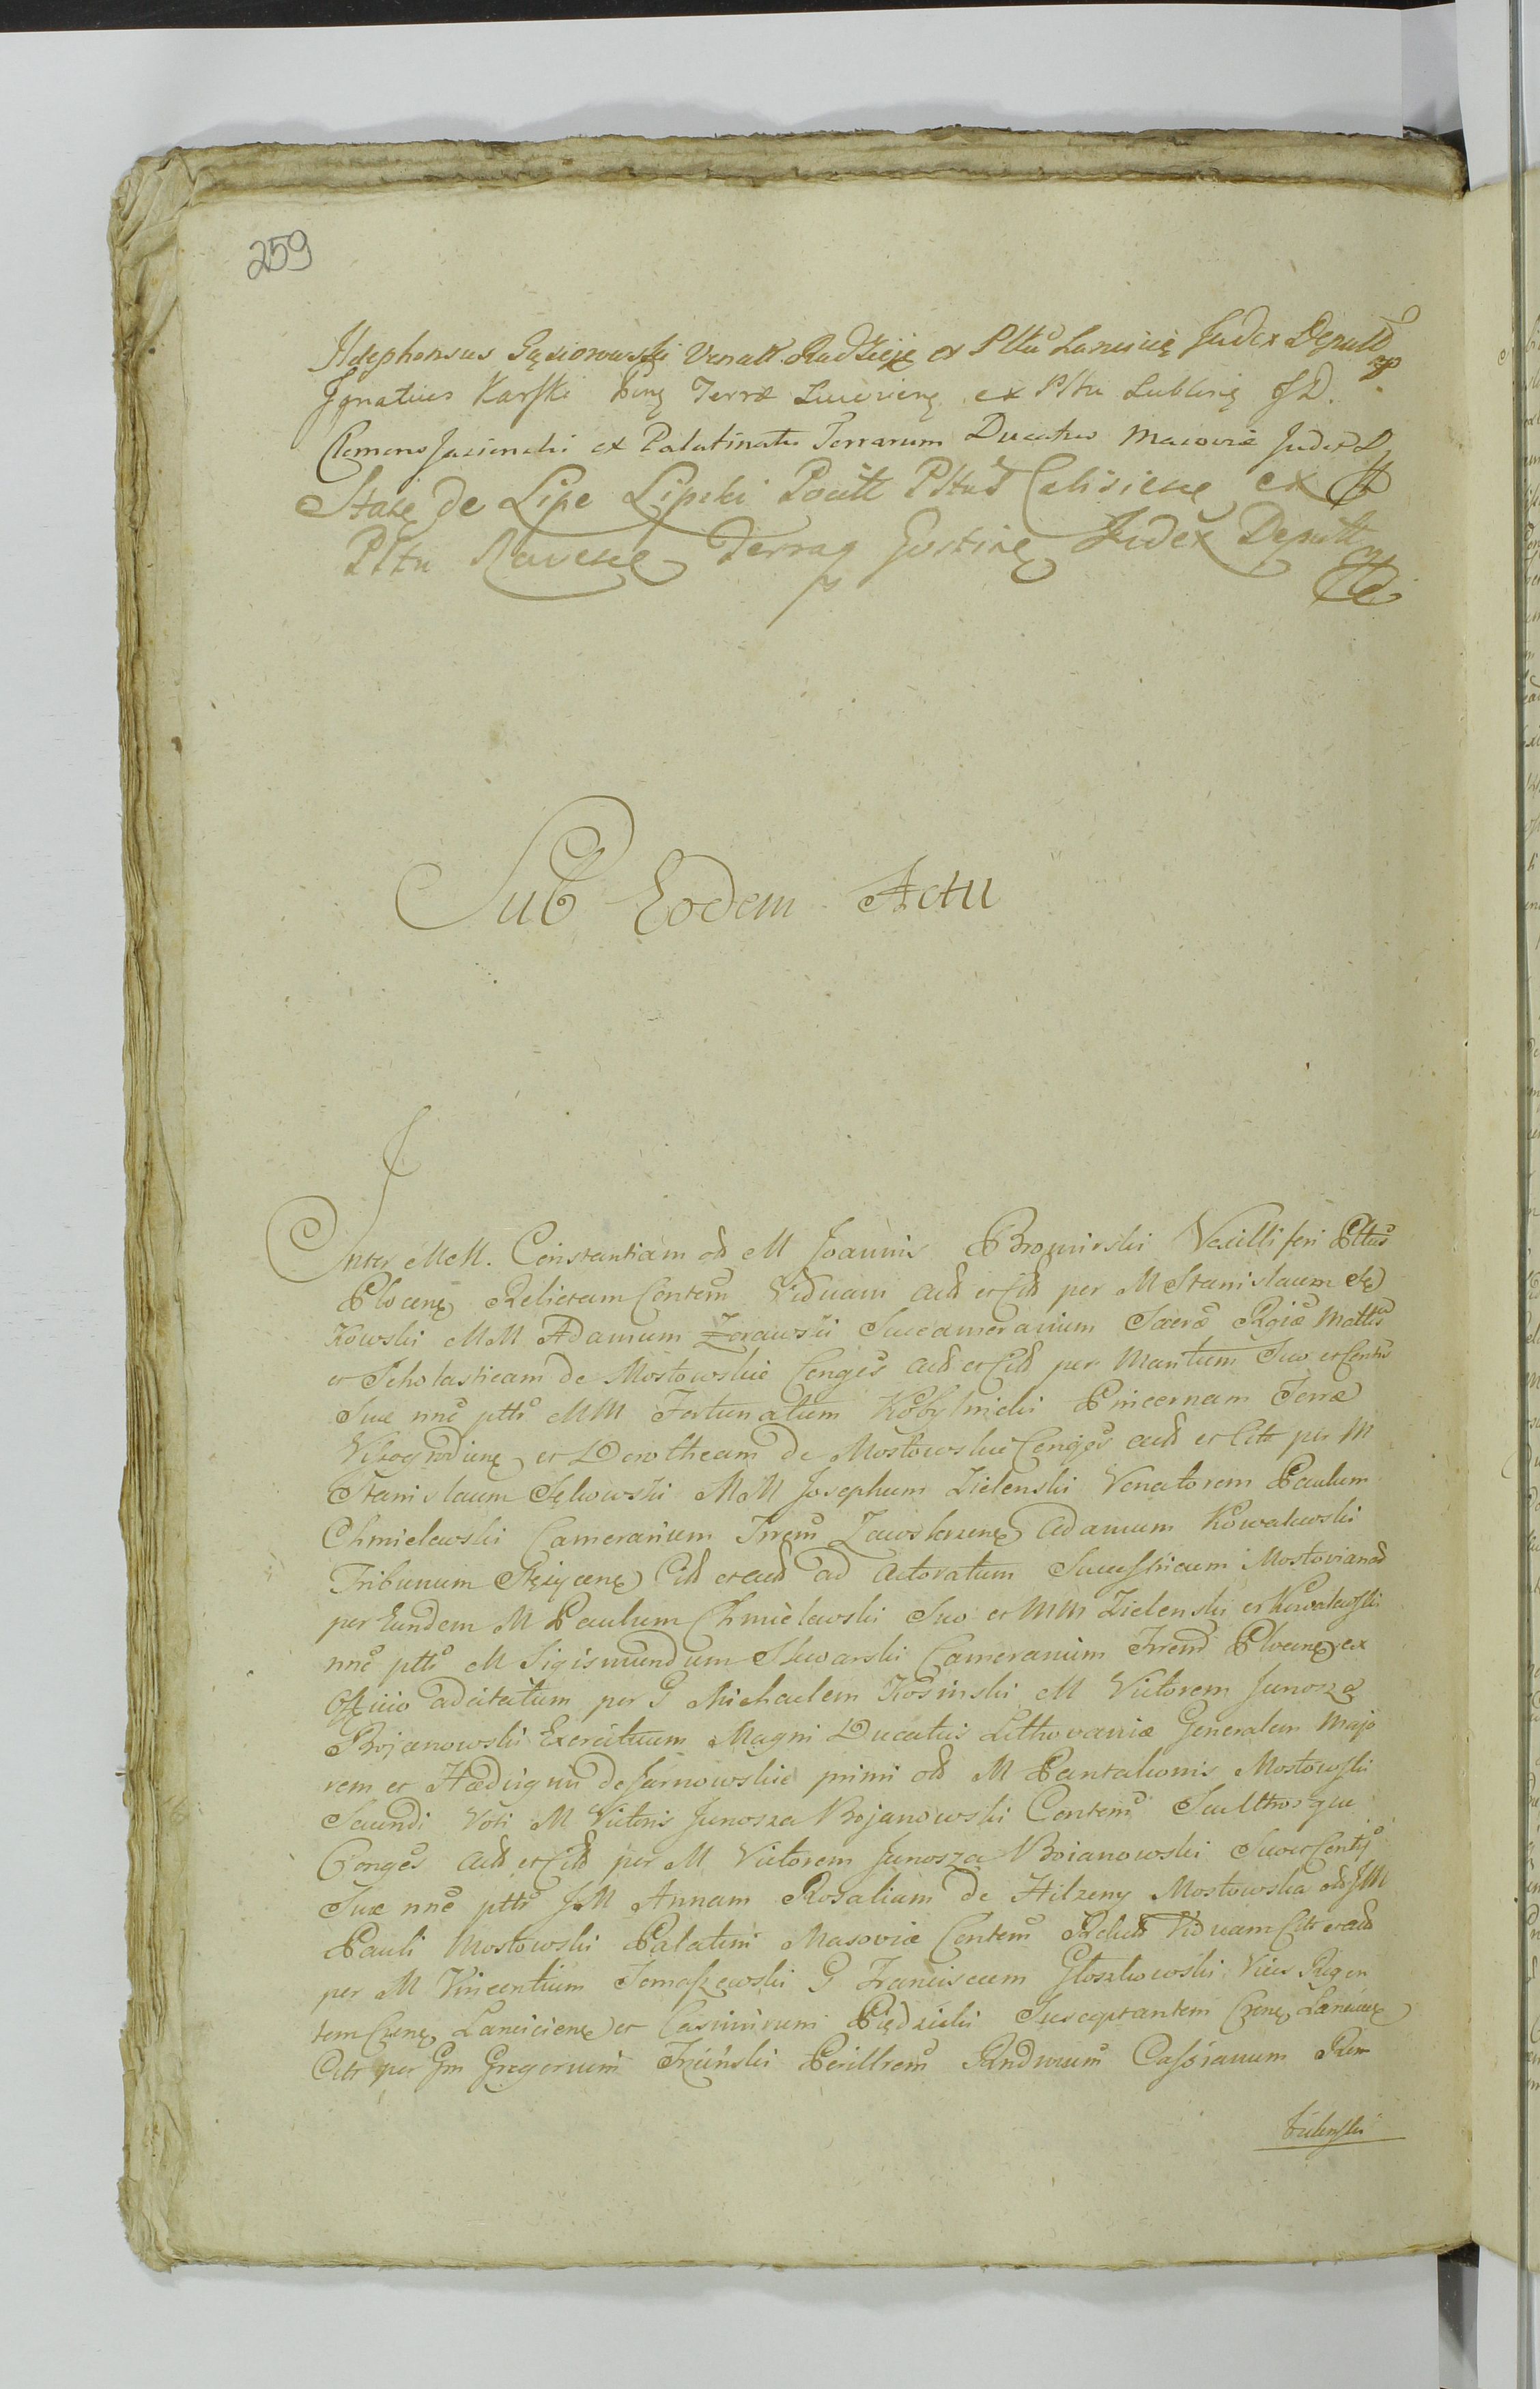 259
Ildephonsus Gąsiorowski Venatt Radzieję ex Pltu Lancicię Judex Deputt
Ignatius Karski Pinę Terræ Lucovienę ex Pltu Lublinę J D.
Clemens Jasienski ex Palatinatu Terrarum Ducatus Masoviæ Judex D
Stase de Lipe Lipski Pocill Pltus Calisiensę ex
Pltu Ravensę Terraq Gostinę Judex Deputt
Sub Eodem Actu
Inter MM. Constantiam od M Joannis Bromirski Vexilliferi Pltus
Plocenę Relictam Contem Viduam act et Cit per M Stanislaum Sę
kowski MM Adamum Zorawski Succamerarium Sacræ Rgiæ Mattis
et Scholasticam de Mostowskie Conges act et Cit per Maritum Suo et Contis
Suæ nne pttr MM Fortunatum Kobylnicki Pincernam Terræ
Vissogrodienę et Dorotheam de Mostowskie Conges act et Cit per M
Stanislaum Sękowski MM Josephum Zielenski Venatorem Paulum
Chmielewski Camerarium Trrem Zawskrzenę Adamum Kowalewski
Tribunum Stężycenę Cit et act ad Actoratum Successricum Mostovianod
per Eundem M Paulum Chmielewski Suo et MM Zielenski et Kowalewski
nne pttr M Sigismundum Skwarski Camerarium Trrem Plocenę ex
Officio adcitatum per G Michaelem Kosinski M Victorem Junosza
Bojanowski Exercituum Magni Ducatus Lithvaniæ Generalem Majo
rem et Hædvigim de Sarnowskie primi od M Pantaleonis Mostowski
Secundi Voti M Victoris Junosza Bojanowski Contem
Conges act et Cit per M Victorem Junosza Boianowski Suo et Contis
Suæ nne pttr JM Annam Rosaliam de Hilzeny Mostowska od JM
Pauli Mostowski Palatini Masoviæ Contem Relict Viduam Cit et act
per M Vincentium Tomaszewski G Franciscum Głoszkowski Vices Regen
tem Cnenę Lancicienę et Casimirum Piędzicki Susceptantem Cnenę Lancicienę
Citt per Gm Gregorium Trzcinski Perillrem Rndmum Cassianum